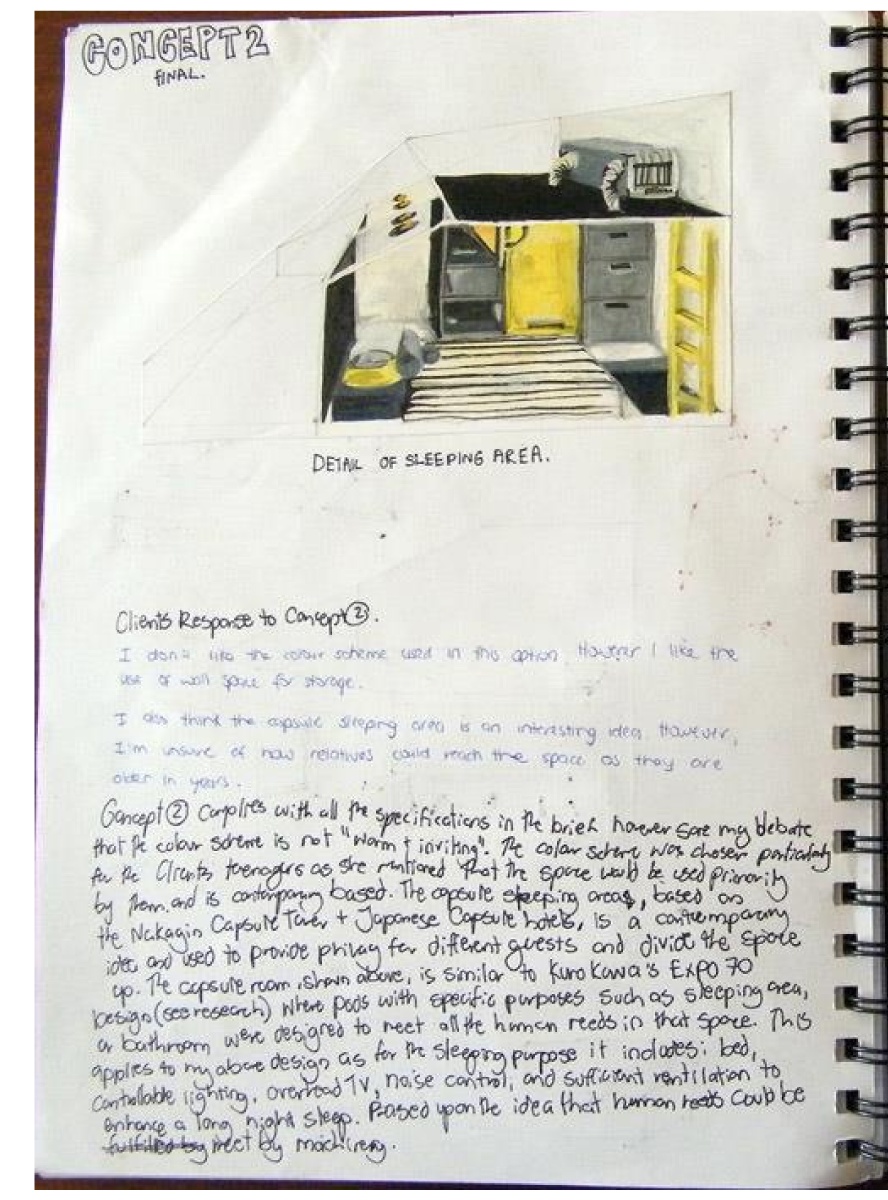 CONCEPT 2
FINAL.
DETAIL OF SLEEPING AREA.
Clients Response to Concept ②.
I don't like the colour scheme used in this option. However I like the
use of wall space for storage.
I also think the capsule sleeping area is an interesting idea. However,
I'm unsure of how relatives could reach the space as they are
older in years.
Concept ② Complies with all the specifications in the brief, however some my debate
that the colour scheme is not "warm + inviting". The colour scheme was chosen particularly
for the Clients teenagers as she mentioned that the space would be used primarily
by them and is contemporary based. The capsule sleeping areas, based on
the Nakagin Capsule Tower + Japanese Capsule hotels, is a contemporary
idea and used to provide privacy for different guests and divide the space
up. The capsule room, shown above, is similar to Kurokawa's EXPO 70
Design (see research) where pods with specific purposes such as sleeping area,
or bathroom were designed to meet all the human needs in that space. This
applies to my above design as for the sleeping purpose it includes: bed,
controllable lighting, overhead TV, noise control, and sufficient ventilation to
enhance a long night sleep. Based upon the idea that human needs could be
fulfilled by meet by machinery.